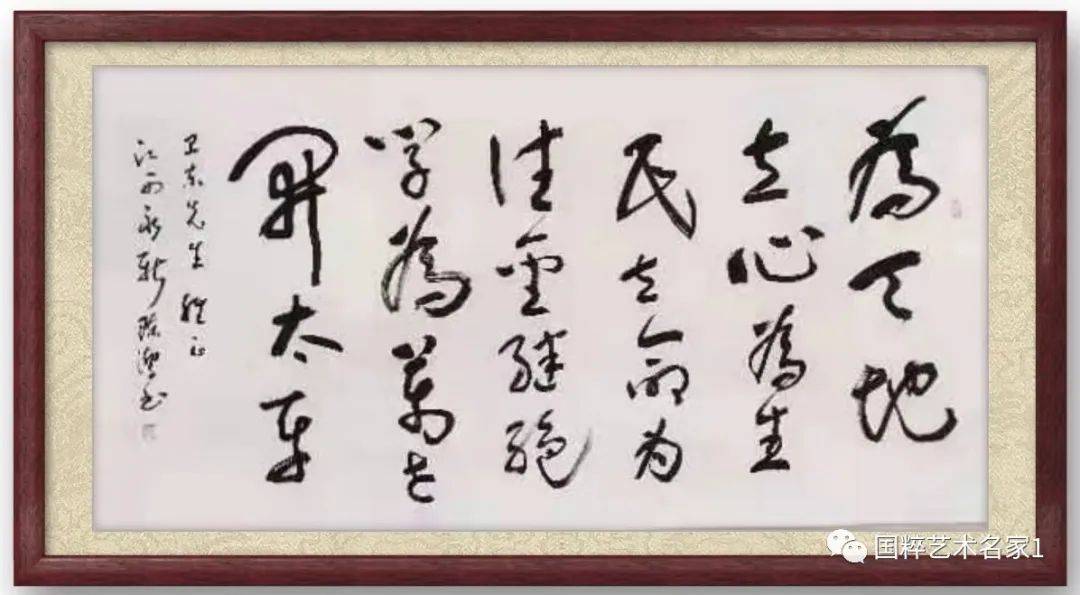 為天地
立心為生
民立命为
往聖继绝
学為萬世
開太平
卫东先生 正
江西永新 书
国粹艺术名家1